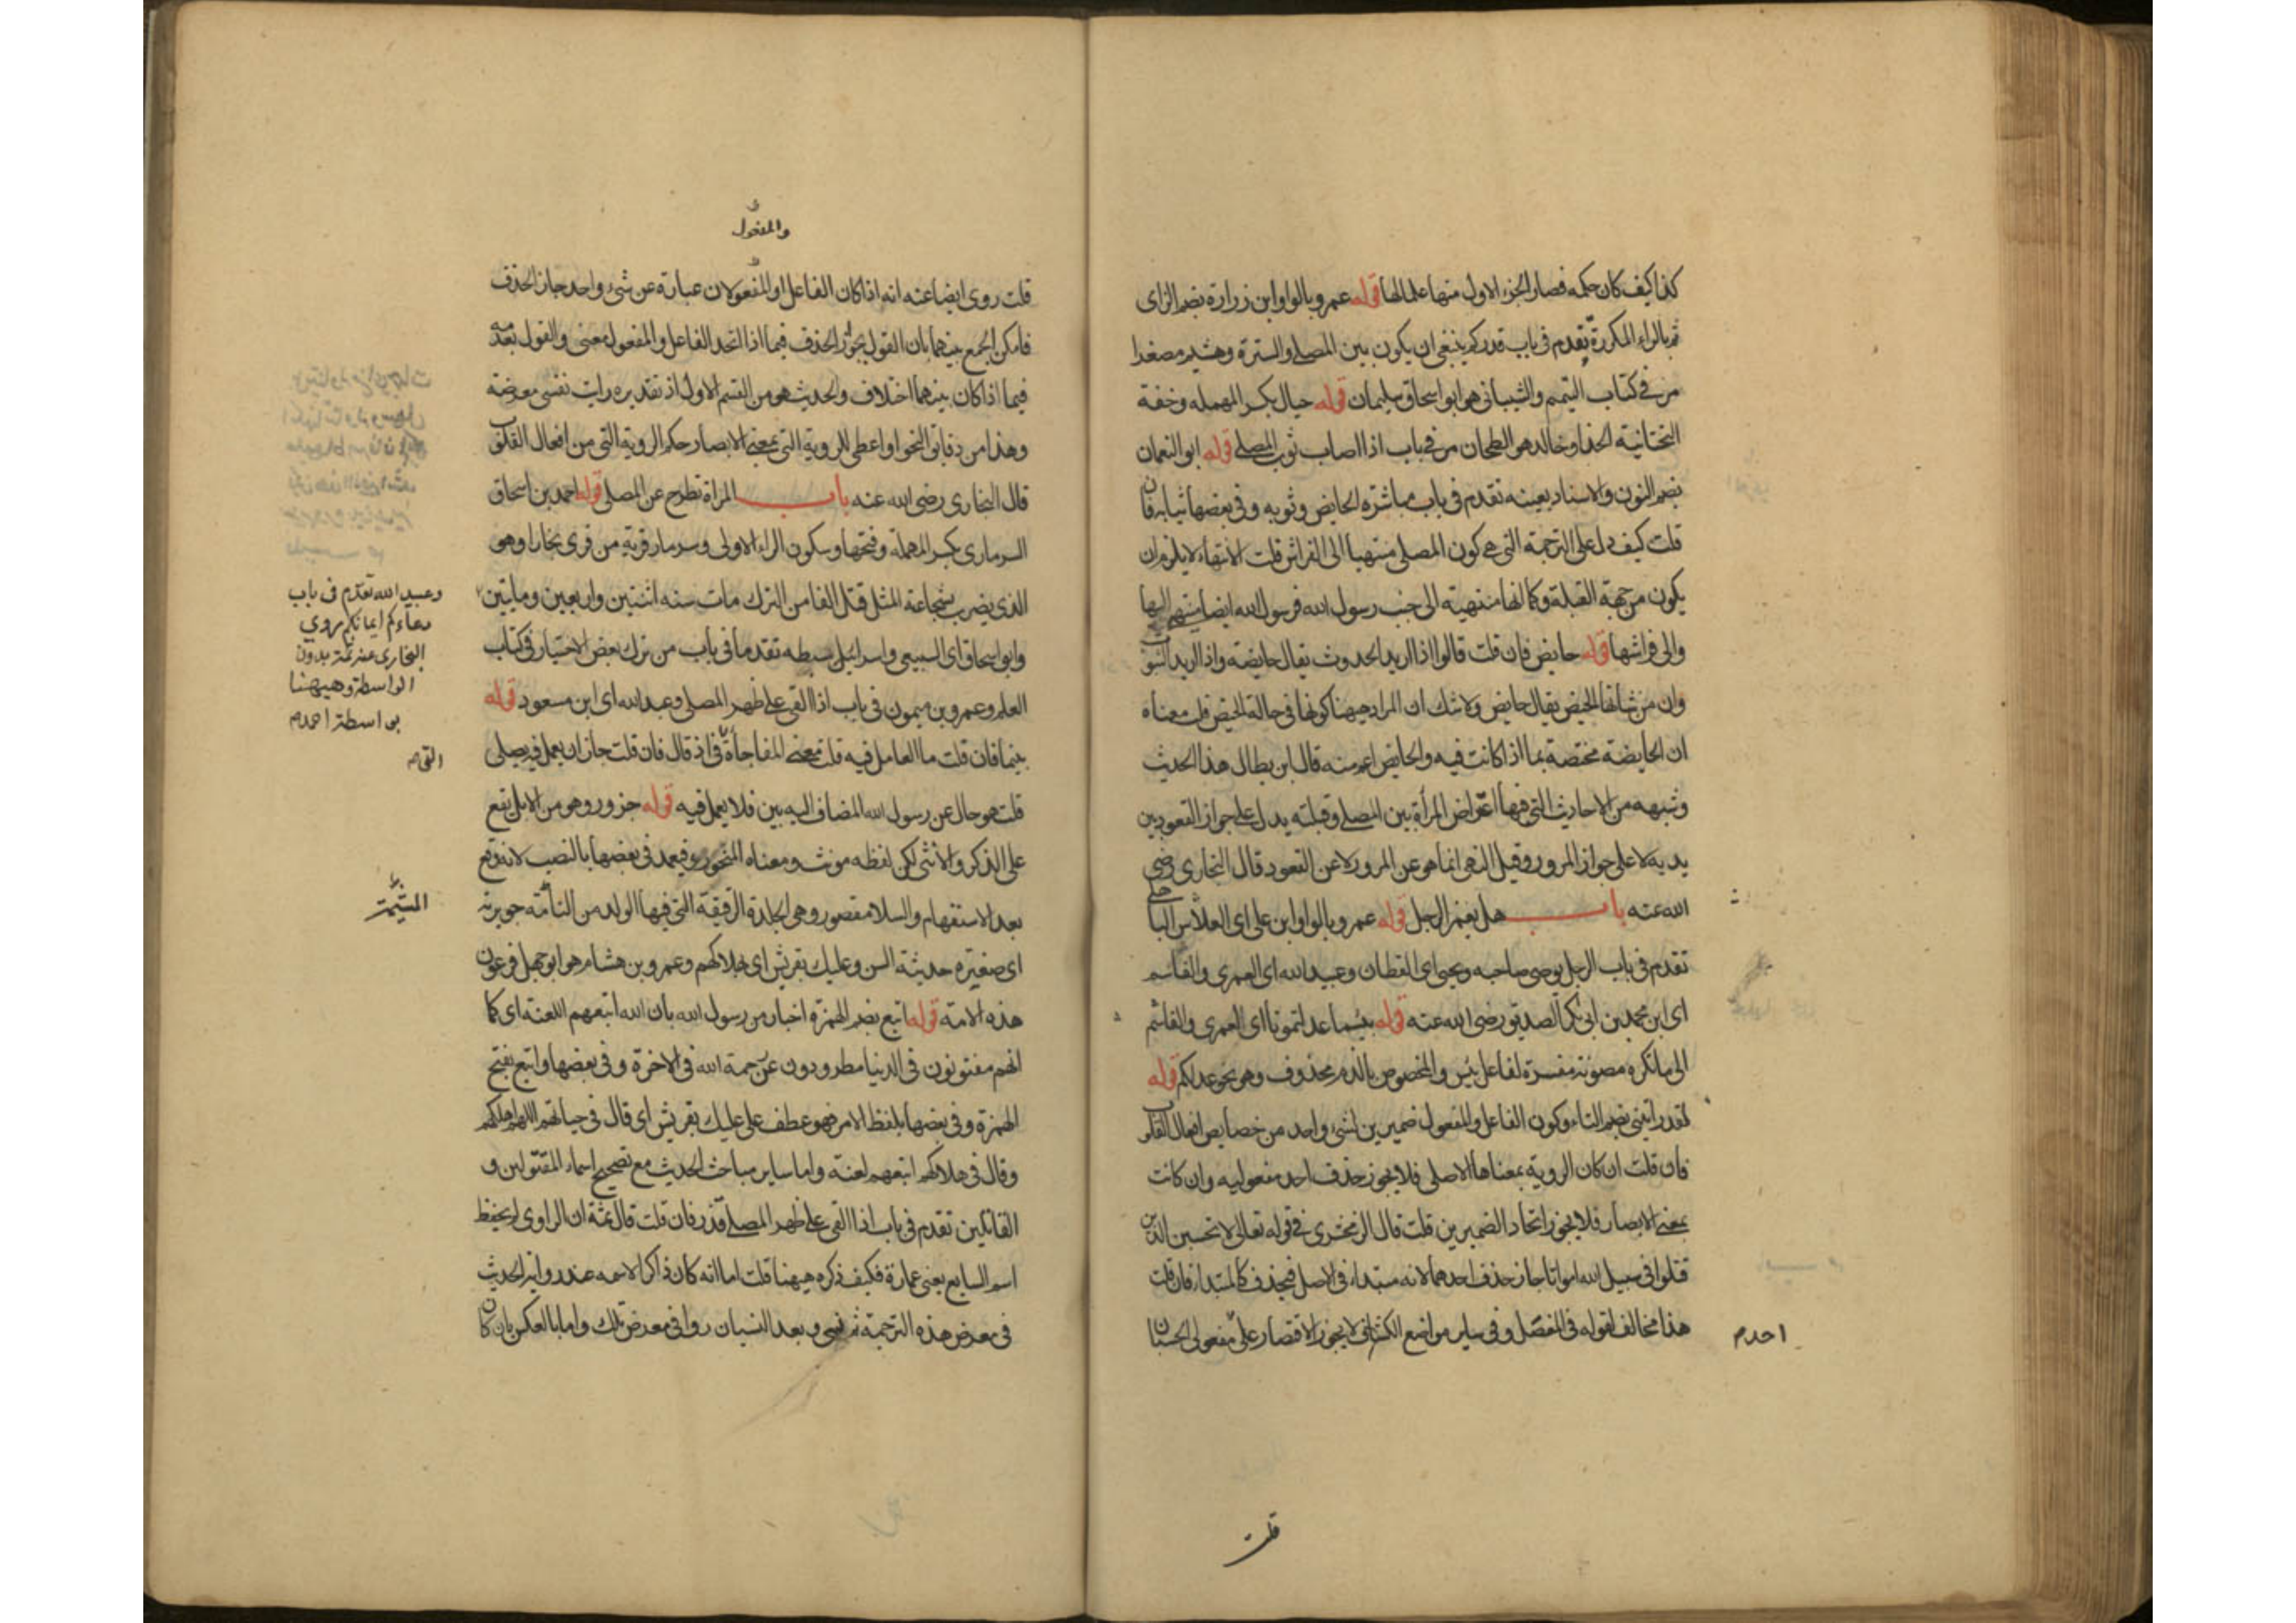 كذا كيف كان حكمه فصار الجزء الاول منها علما لها قوله عمرو بالواو ابن زرارة بضم الزاى
ثم بالراء المكررة تقدم فى باب قدر كم ينبغى ان يكون بين المصلى والسترة وهشيم مصغرا
مر فى كتاب التيمم والشيبانى هو ابو اسحاق سليمان قوله حيال بكسر المهملة وخفة
التحتانية الحذا وخالد هو الطحان مر فى باب اذا اصاب ثوب المصلى قوله ابو النعمان
بضم النون والاسناد بعينه تقدم فى باب مباشرة الحايض وثوبه وفى بعضها ثيابه فان
قلت كيف دل على الترجمة التى هى كون المصلى منتهيا الى الفراش قلت الانتهاء لا يلزم ان
يكون من جهة القبلة وكما انها منتهية الى جنب رسول الله فرسول الله ايضا منتهى اليها
والى فراشها قوله حايض فان قلت قالوا اذا اريد الحدوث يقال حايضة واذا اريد الثبوت
وان من شانها الحيض يقال حايض ولا شك ان المراد هيهنا كونها فى حالة الحيض قلت معناه
ان الحايضة مختصة بما اذا كانت فيه والحايض اعم منه قال ابن بطال هذا الحديث
وشبهه من الاحاديث التى فيها اعتراض المرأة بين المصلى وقبلته يدل على جواز القعود بين
يديه لا على جواز المرور وقيل النهى انما هو عن المرور لا عن القعود قال البخارى رضى
الله عنه باب هل يغمز الرجل قوله عمرو بالواو ابن على اى الفلاس الباهلى
تقدم فى باب الرجل يوضى صاحبه ويحيى اى القطان وعبيد الله اى العمرى والقاسم
اى ابن محمد بن ابى بكر الصديق رضى الله عنه قوله بئسما عدلتمونا اى العمرى والقاسم
الى ما نكرة موصوفة مفسرة لفاعل بئس والمخصوص بالذم محذوف وهو نحو عدلكم قوله
لقد رايتنى بضم التاء وكون الفاعل والمفعول ضميرين لشىء واحد من خصايص افعال القلوب
فان قلت ان كان الروية بمعناها الاصلى فلا يجوز حذف احد مفعوليه وان كانت
بمعنى الابصار فلا يجوز اتحاد الضميرين قلت قال الزمخشرى فى قوله تعالى لا تحسبن الذين
قتلوا فى سبيل الله امواتا جاز حذف احدهما لانه مبتداء فى الاصل فيحذف كالمبتداء فان قلت
هذا مخالف لقوله فى المفصل وفى ساير مواضع الكشاف لا يجوز الاقتصار على مفعولى الحسبان
احدم
قلت
والمفعول
قلت روى ايضا عنه انه اذا كان الفاعل او المفعولان عبارة عن شىء واحد جاز الحذف
فامكن الجمع بينهما بان القول بجواز الحذف فيما اذا اتحد الفاعل والمفعول معنى والقول بعدمه
فيما اذا كان بينهما اختلاف والحديث هو من القسم الاول اذ تقديره رايت نفسى معرضة
وهذا من دقايق النحو او اعطى للروية التى بمعنى الابصار حكم الروية التى من افعال القلوب
قال البخارى رضى الله عنه باب المراة تطرح عن المصلى قوله احمد بن اسحاق
السرمارى بكسر المهملة وفتحها وسكون الراء الاولى وسرمار قرية من قرى بخارا وهو
الذى يضرب بشجاعته المثل قتل الفا من الترك مات سنه اثنتين واربعين ومايتين
وعبيد الله تقدم فى باب
دعاءكم ايمانكم روي
البخارى عنه ثمة بدون
الواسطة وهيهنا
بواسطة احمدم
وابو اسحاق اى السبيعى واسرائيل سبطه تقدما فى باب من ترك بعض الاختيار فى كتاب
العلم وعمرو بن ميمون فى باب اذا القى على ظهر المصلى وعبد الله اى ابن مسعود قوله
بينما فان قلت ما العامل فيه قلت معنى المفاجأة فى اذ قال فان قلت جاز ان يعمل فيه يصلى
التى م
قلت هو حال عن رسول الله المضاف اليه بين فلا يعمل فيه قوله جزور وهو من الابل يقع
على الذكر والانثى لكن لفظه مونث ومعناه المنحور فيعمد فى بعضها بالنصب لانه وقع
بعد الاستفهام والسلا مقصور وهى الجلدة الرقيقة التى فيها الولد من الناقة جويرية
المشيمة
اى صغيرة حديثة السن وعليك بقريش اى بهلاكهم وعمرو بن هشام هو ابو جهل فرعون
هذه الامة قوله اتبع بضم الهمزة اخبار من رسول الله بان الله اتبعهم اللعنة اى كما
انهم مقتولون فى الدنيا مطرودون عن رحمة الله فى الاخرة وفى بعضها واتبع بفتح
الهمزة وفى بعضها بلفظ الامر فهو عطف على عليك بقريش اى قال فى حياتهم اللهم اهلكهم
وقال فى هلاكهم اتبعهم لعنة واما ساير مباحث الحديث مع تصحيح اسماء المقتولين و
القاتلين تقدم فى باب اذا القى على ظهر المصلى قذر فان قلت قال ثمة ان الراوى لم يحفظ
اسم السابع يعنى عمارة فكيف ذكره هيهنا قلت اما انه كان ذاكرا لاسمه عند رواية الحديث
فى معرض هذه الترجمة ثم نسى وبعد النسيان روا فى معرض تلك واما بالعكس بان كان